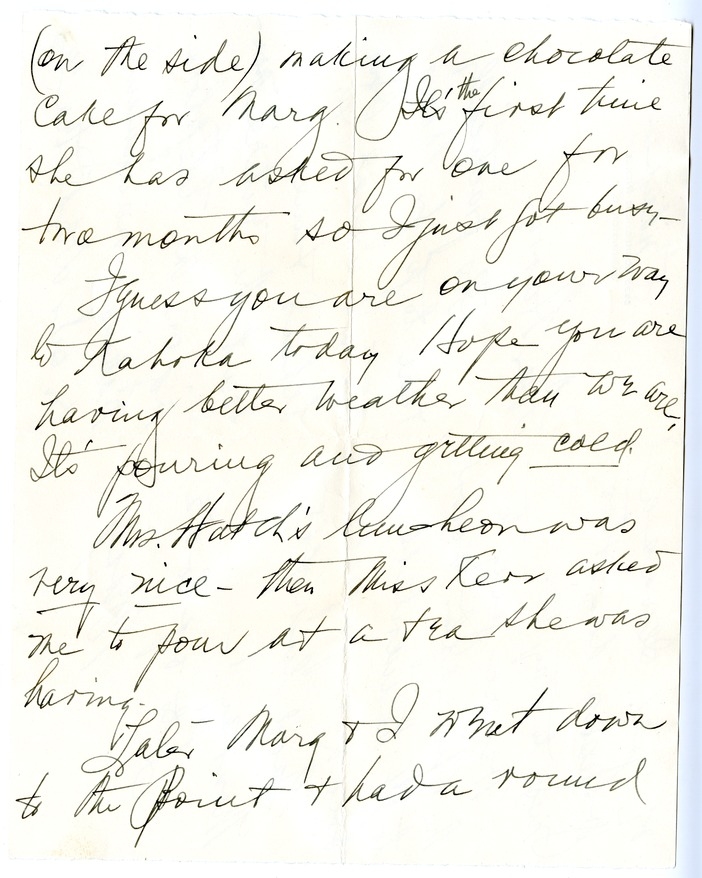 (on the side) making a chocolate
Cake for Marg. It's the first time
she has asked for one for
two months so I just got busy—
I guess you are on your way
to Kahoka today Hope you are
having better weather than we are,
It's pouring and getting cold.
Mrs. Hatch's luncheon was
very nice – then Miss Kerr asked
me to pour at a tea she was
having.
Later Marg & I went down
to the Point & had a round